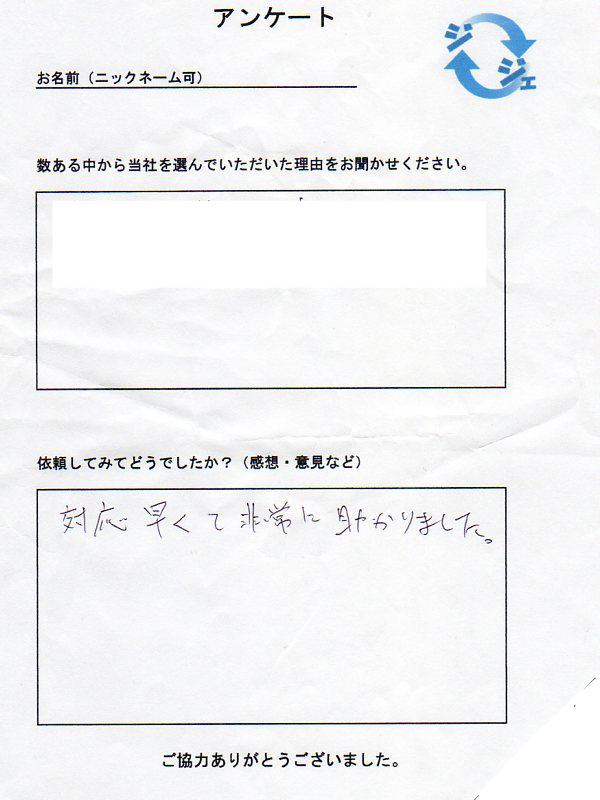 アンケート
ジジェ
お名前（ニックネーム可）
数ある中から当社を選んでいただいた理由をお聞かせください。
依頼してみてどうでしたか？（感想・意見など）
対応早くて非常に助かりました。
ご協力ありがとうございました。